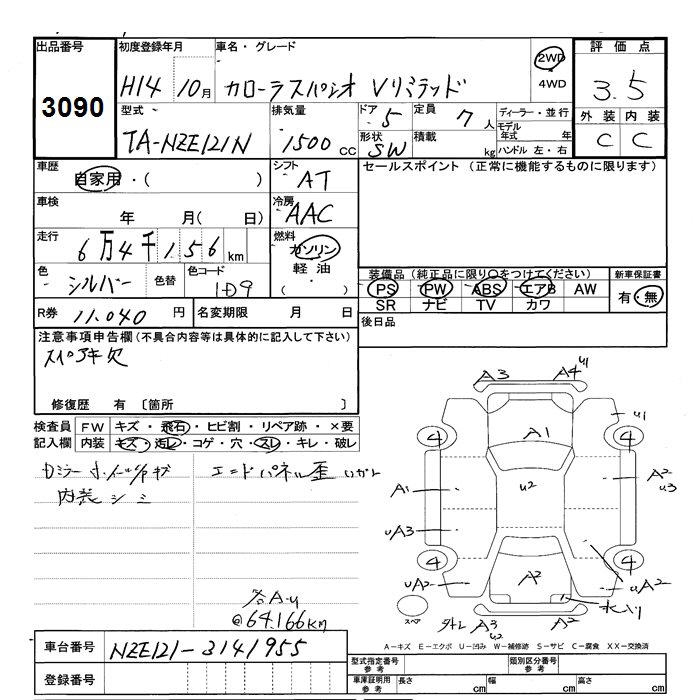 出品番号 初度登録年月 車名・グレード 評価点
3090 H14 10月 カローラスパシオ Vリミテッド 2WD 4WD 3.5
型式 排気量 ドア 定員 ディーラー・並行 外装 内装
TA-NZE121N 1500cc 5 7人 モデル年式 年 C C
形状 SW 積載 kg ハンドル 左・右
車歴 自家用・( ) シフト AT セールスポイント (正常に機能するものに限ります)
車検 年 月( 日) 冷房 AAC
走行 6万4千156km 燃料 ガソリン 軽油 ・( )
色 シルバー 色替 色コード 1D9 装備品(純正品に限り○をつけてください) 新車保証書
PS PW ABS エアB AW 有・無
SR ナビ TV カワ
R券 11.040円 名変期限 月 日 後日品
注意事項申告欄(不具合内容等は具体的に記入して下さい)
スペアキ欠
修復歴 有 〔箇所 〕
検査員 FW キズ・飛石・ヒビ割・リペア跡・×要
記入欄 内装 キズ・汚レ・コゲ・穴・スレ・キレ・破レ
内装シミ エンドパネル歪
各A・U
@64.166km
A3 A4 U1
4 A1 4 U1
A1 U2 A2 U3
UA3
4 4
UA2 A2 UA2
スペア A3 U2 A2
A-キズ E-エクボ U-凹み W-補修跡 S-サビ C-腐食 XX-交換済
車台番号 NZE121-3141955
登録番号
型式指定番号 参考 類別区分番号 参考
車庫証明用 参考 長さ cm 幅 cm 高さ cm